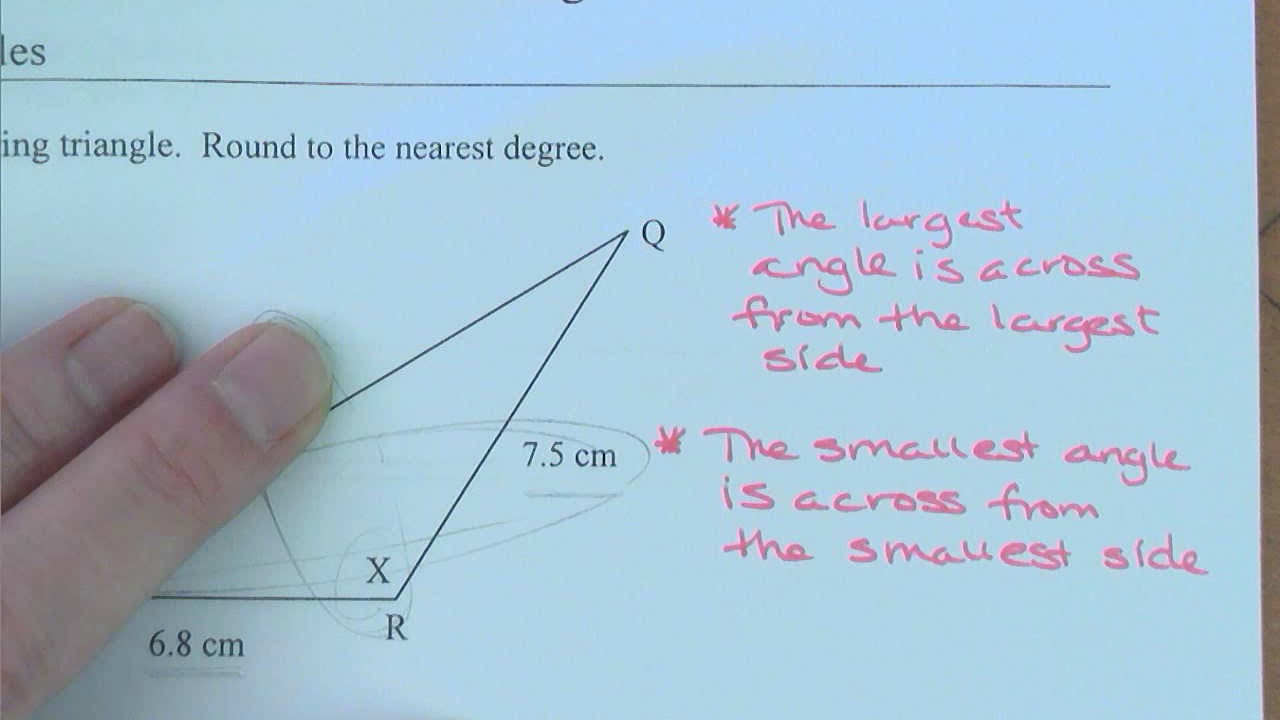 les
ing triangle. Round to the nearest degree.
Q
* The largest
angle is across
from the largest
side
7.5 cm
* The smallest angle
is across from
the smallest side
X
R
6.8 cm